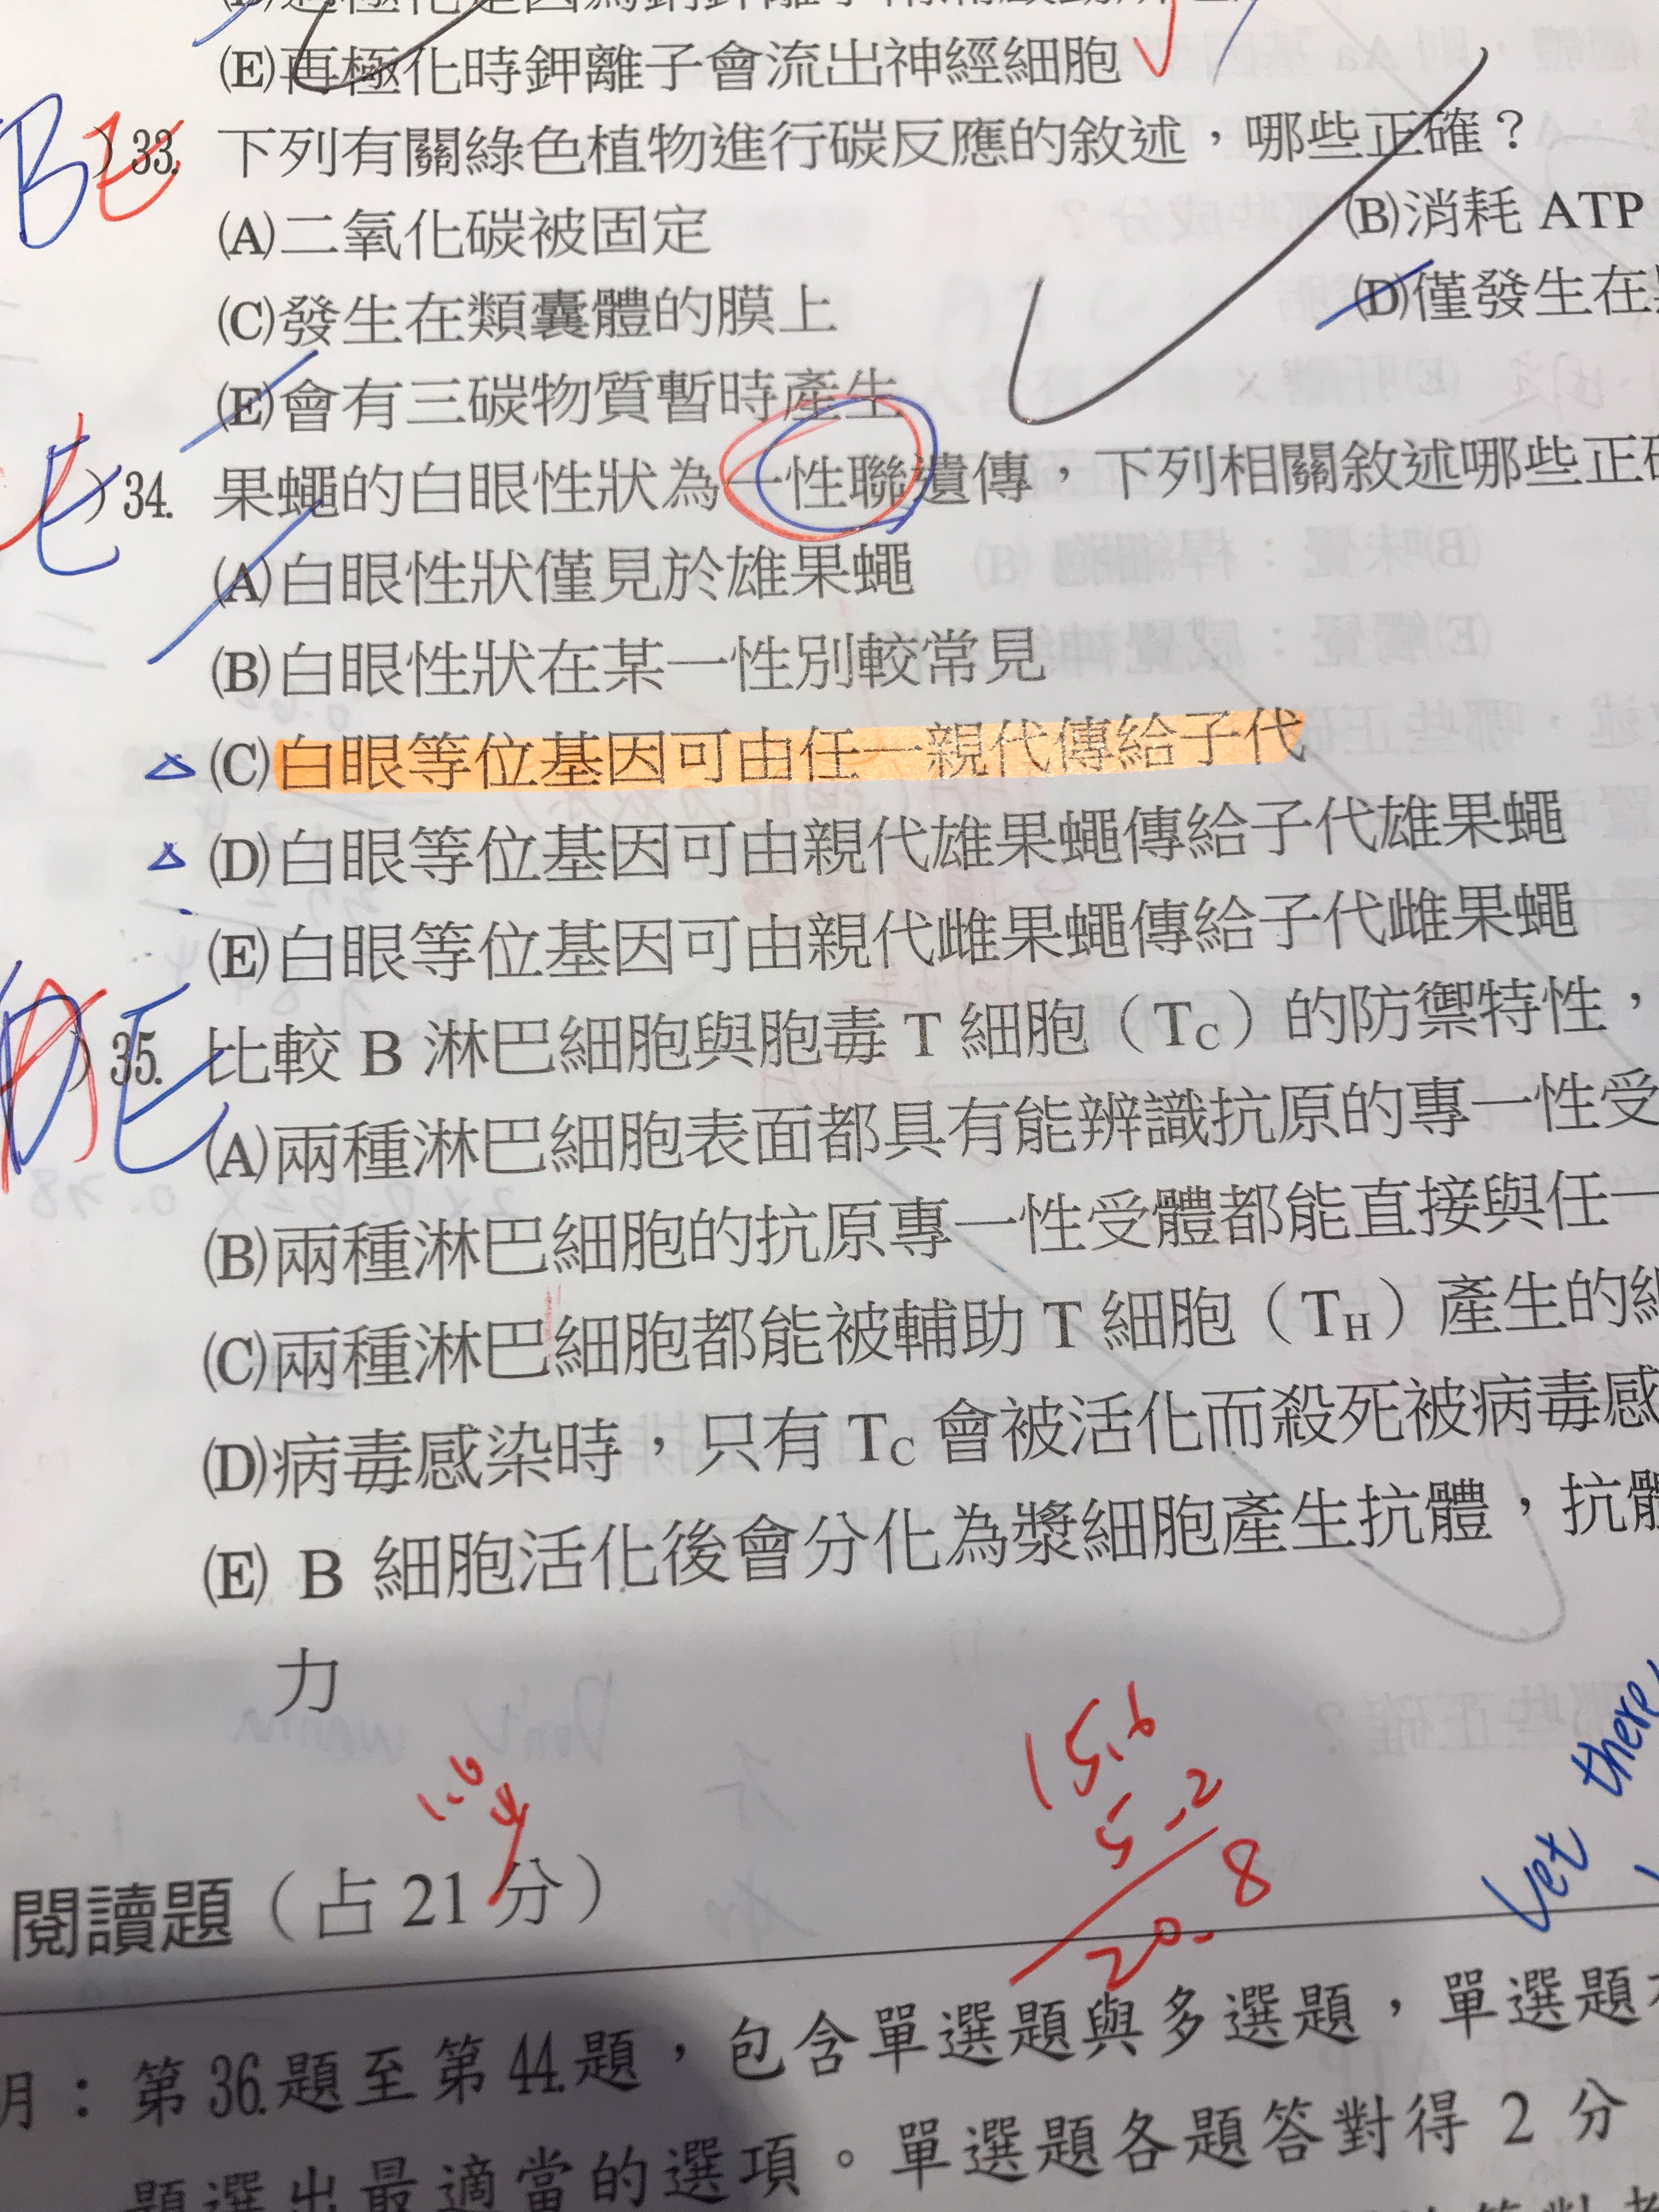 (E)再極化時鉀離子會流出神經細胞
BE )33. 下列有關綠色植物進行碳反應的敘述，哪些正確？
(A)二氧化碳被固定 (B)消耗 ATP
(C)發生在類囊體的膜上 (D)僅發生在
(E)會有三碳物質暫時產生
E )34. 果蠅的白眼性狀為一性聯遺傳，下列相關敘述哪些正確
(A)白眼性狀僅見於雄果蠅
(B)白眼性狀在某一性別較常見
(C)白眼等位基因可由任一親代傳給子代
(D)白眼等位基因可由親代雄果蠅傳給子代雄果蠅
(E)白眼等位基因可由親代雌果蠅傳給子代雌果蠅
E )35. 比較 B 淋巴細胞與胞毒 T 細胞（TC）的防禦特性，
(A)兩種淋巴細胞表面都具有能辨識抗原的專一性受
(B)兩種淋巴細胞的抗原專一性受體都能直接與任一
(C)兩種淋巴細胞都能被輔助 T 細胞（TH）產生的細
(D)病毒感染時，只有 TC 會被活化而殺死被病毒感
(E) B 細胞活化後會分化為漿細胞產生抗體，抗體
力
15.6
5.2
20.8
Let there
閱讀題（占 21 分）
明：第36.題至第44.題，包含單選題與多選題，單選題
題選出最適當的選項。單選題各題答對得 2 分